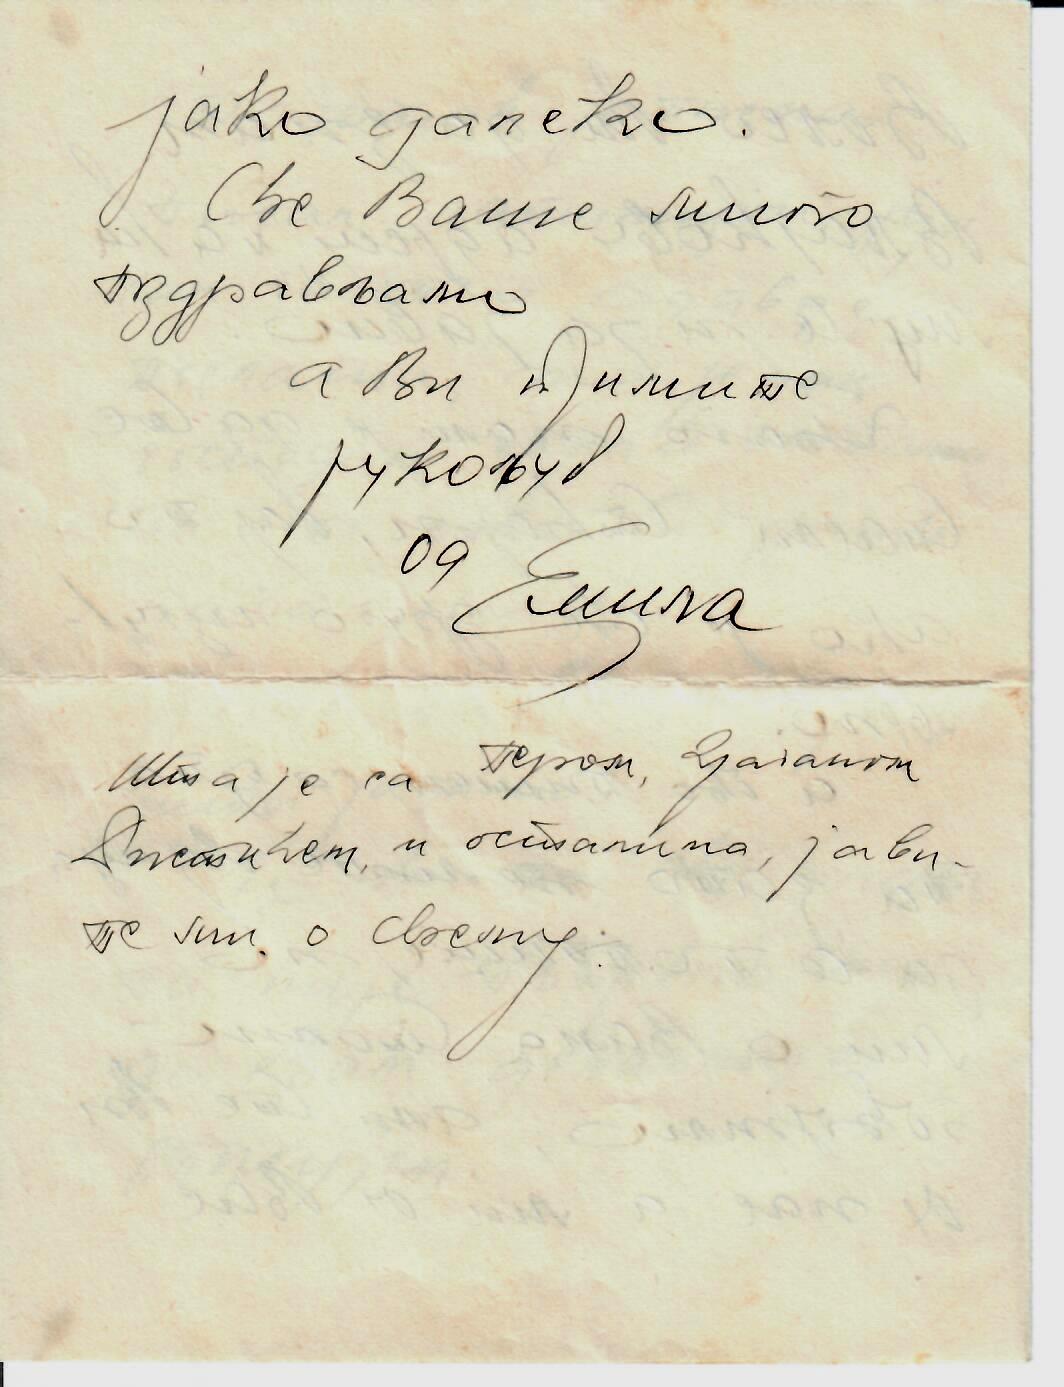 јако далеко.
Све Ваше много
пздрављамо
а Ви примите
рукољуб
од Емила
Шта је са Пером, Драганом
и осталима, јави-
те ми о свему.